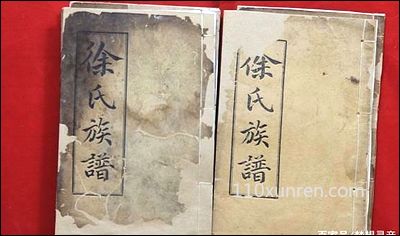 徐氏族譜
俆氏族譜
110xunren.com
百家号/